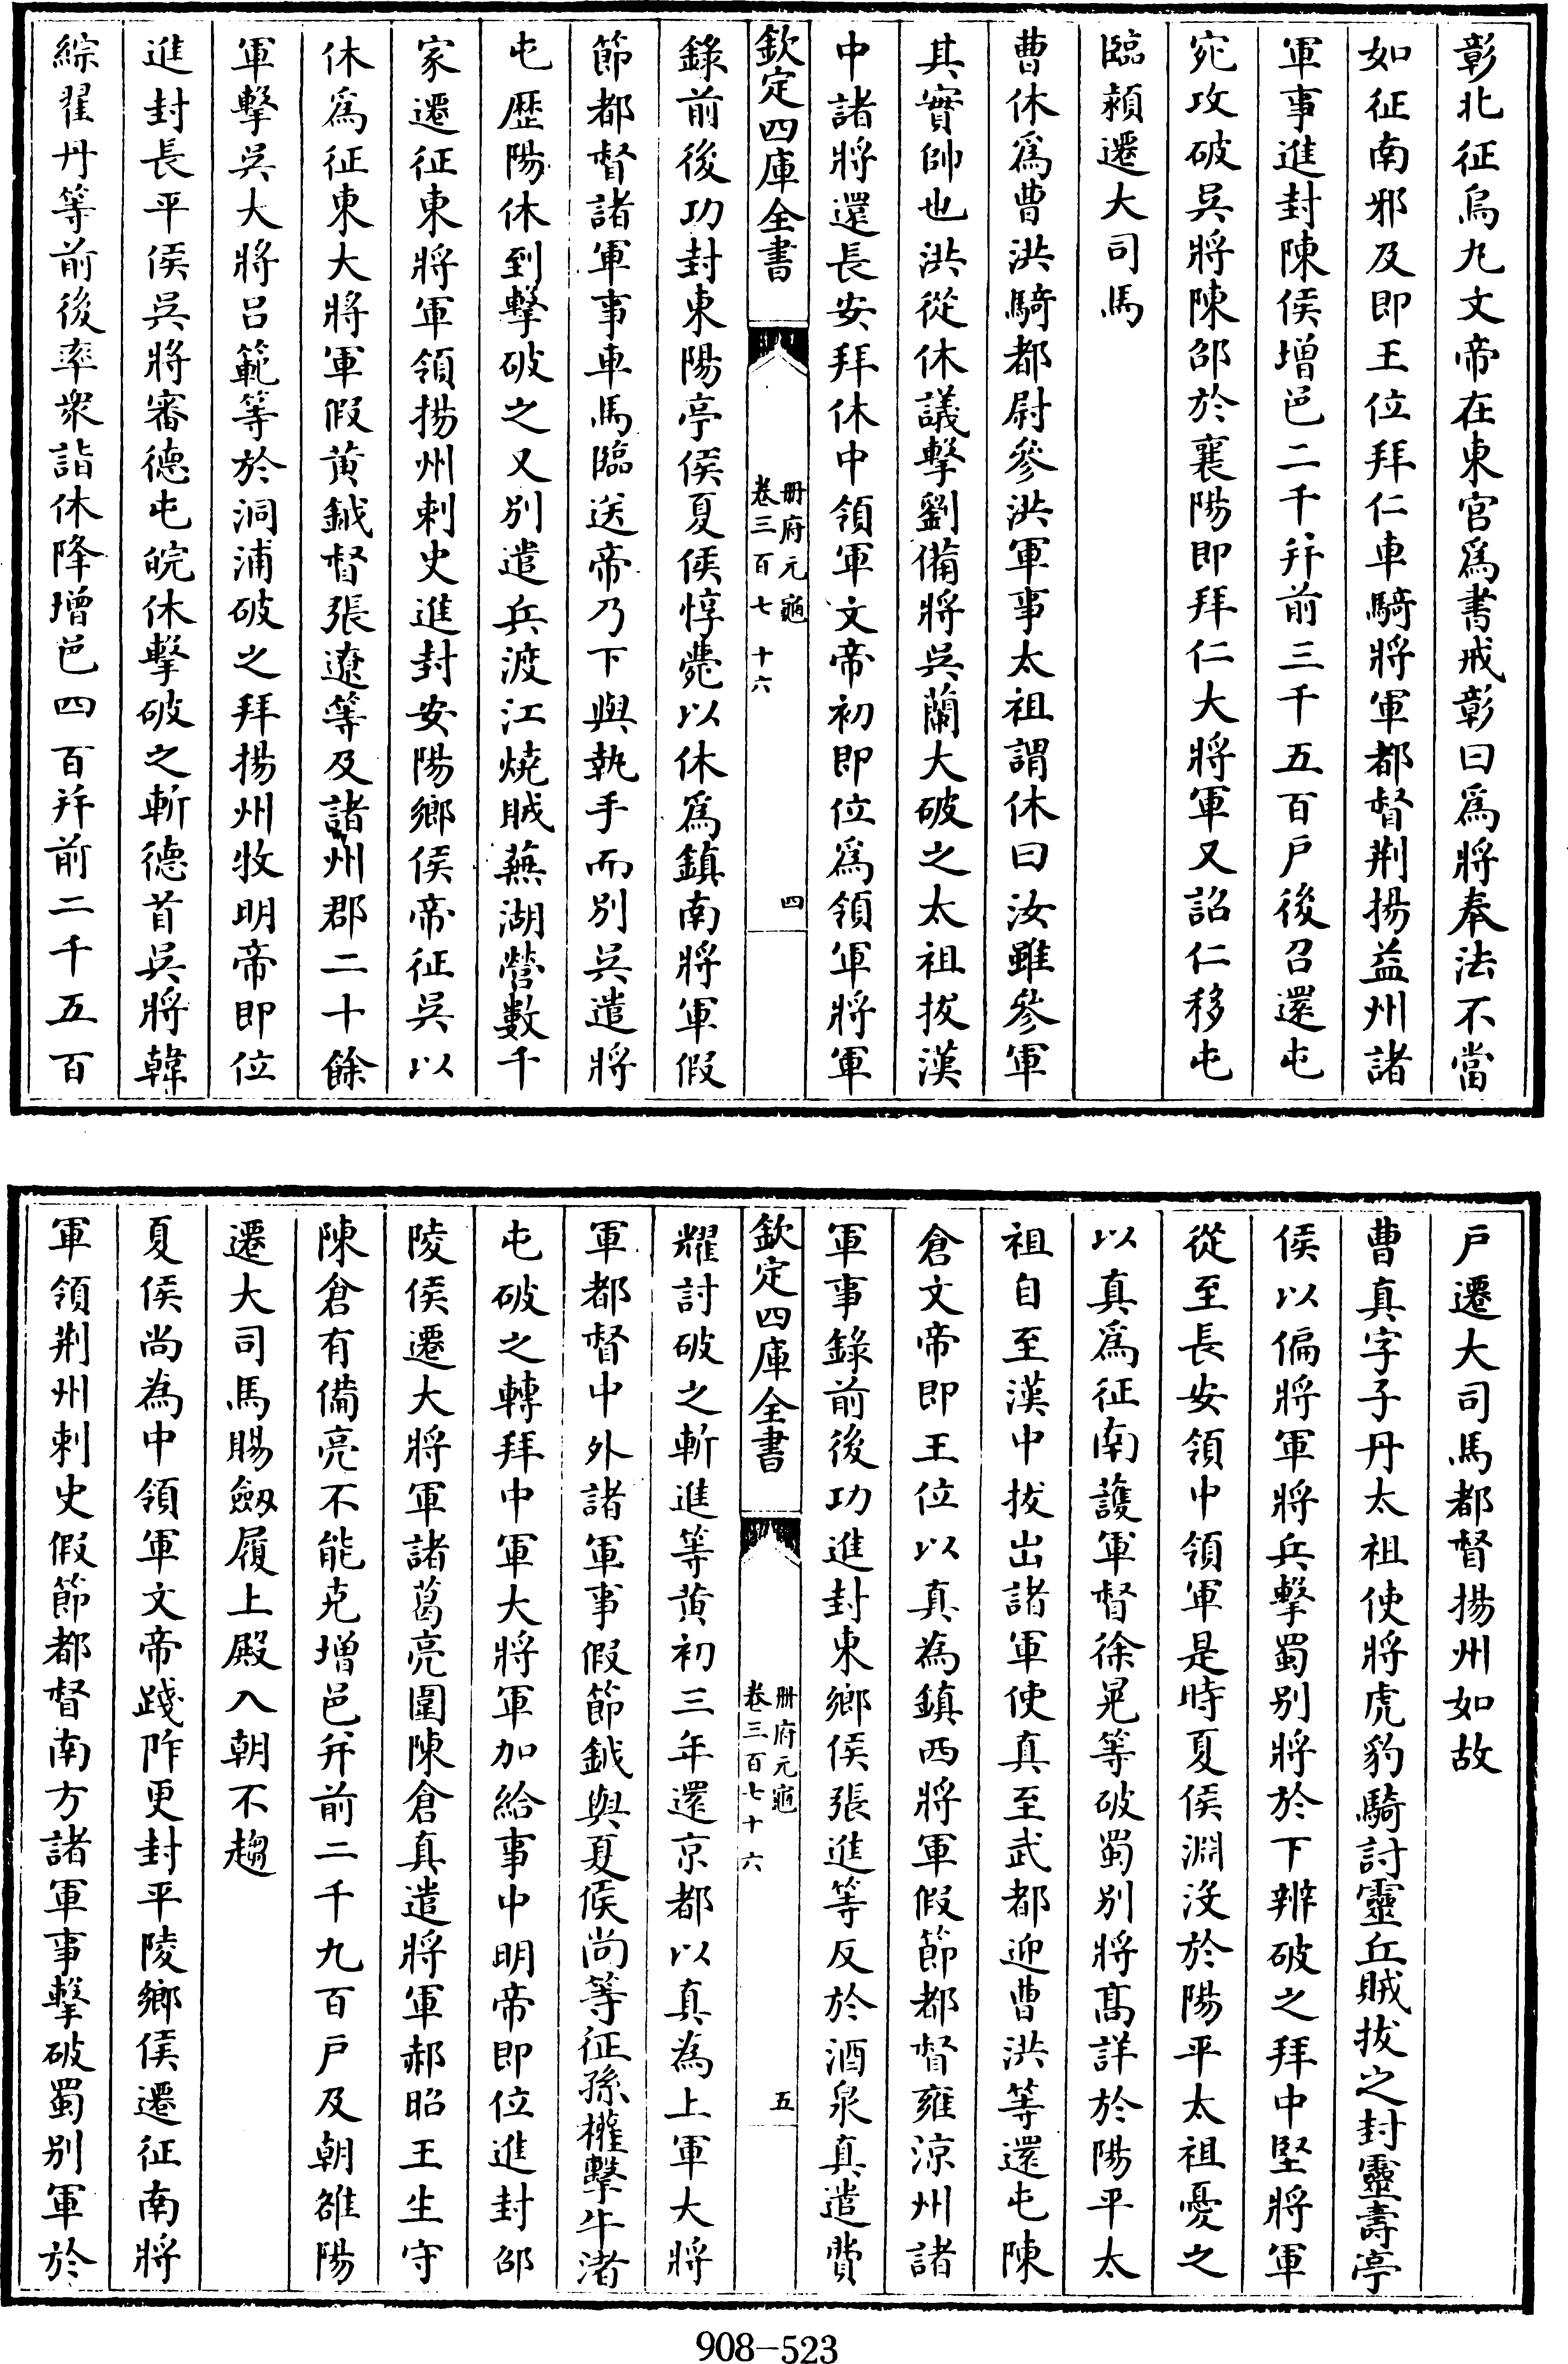 彰北征烏丸文帝在東宮爲書戒彰曰爲將奉法不當
如征南邪及即王位拜仁車騎將軍都督荆揚益州諸
軍事進封陳侯增邑二千并前三千五百戶後召還屯
宛攻破吳將陳邵於襄陽即拜仁大將軍又詔仁移屯
臨潁遷大司馬
曹休爲曹洪騎都尉參洪軍事太祖謂休曰汝雖參軍
其實帥也洪從休議擊劉備將吳蘭大破之太祖拔漢
中諸將還長安拜休中領軍文帝初即位爲領軍將軍
欽定四庫全書
冊府元龜
卷三百七十六
四
錄前後功封東陽亭侯夏侯惇薨以休爲鎮南將軍假
節都督諸軍事車馬臨送帝乃下輿執手而別吳遣將
屯歷陽休到擊破之又別遣兵渡江燒賊蕪湖營數千
家遷征東將軍領揚州刺史進封安陽鄉侯帝征吳以
休爲征東大將軍假黃鉞督張遼等及諸州郡二十餘
軍擊吳大將呂範等於洞浦破之拜揚州牧明帝即位
進封長平侯吳將審德屯皖休擊破之斬德首吳將韓
綜翟丹等前後率衆詣休降增邑四百并前二千五百
戶遷大司馬都督揚州如故
曹真字子丹太祖使將虎豹騎討靈丘賊拔之封靈壽亭
侯以偏將軍將兵擊蜀別將於下辨破之拜中堅將軍
從至長安領中領軍是時夏侯淵沒於陽平太祖憂之
以真爲征南護軍督徐晃等破蜀別將高詳於陽平太
祖自至漢中拔出諸軍使真至武都迎曹洪等還屯陳
倉文帝即王位以真為鎮西將軍假節都督雍涼州諸
軍事錄前後功進封東鄉侯張進等反於酒泉真遣費
欽定四庫全書
冊府元龜
卷三百七十六
五
耀討破之斬進等黃初三年還京都以真為上軍大將
軍都督中外諸軍事假節鉞與夏侯尚等征孫權擊牛渚
屯破之轉拜中軍大將軍加給事中明帝即位進封邵
陵侯遷大將軍諸葛亮圍陳倉真遣將軍郝昭王生守
陳倉有備亮不能克增邑并前二千九百戶及朝雒陽
遷大司馬賜劔履上殿入朝不趨
夏侯尚為中領軍文帝踐阼更封平陵鄉侯遷征南將
軍領荆州刺史假節都督南方諸軍事擊破蜀別軍於
908-523